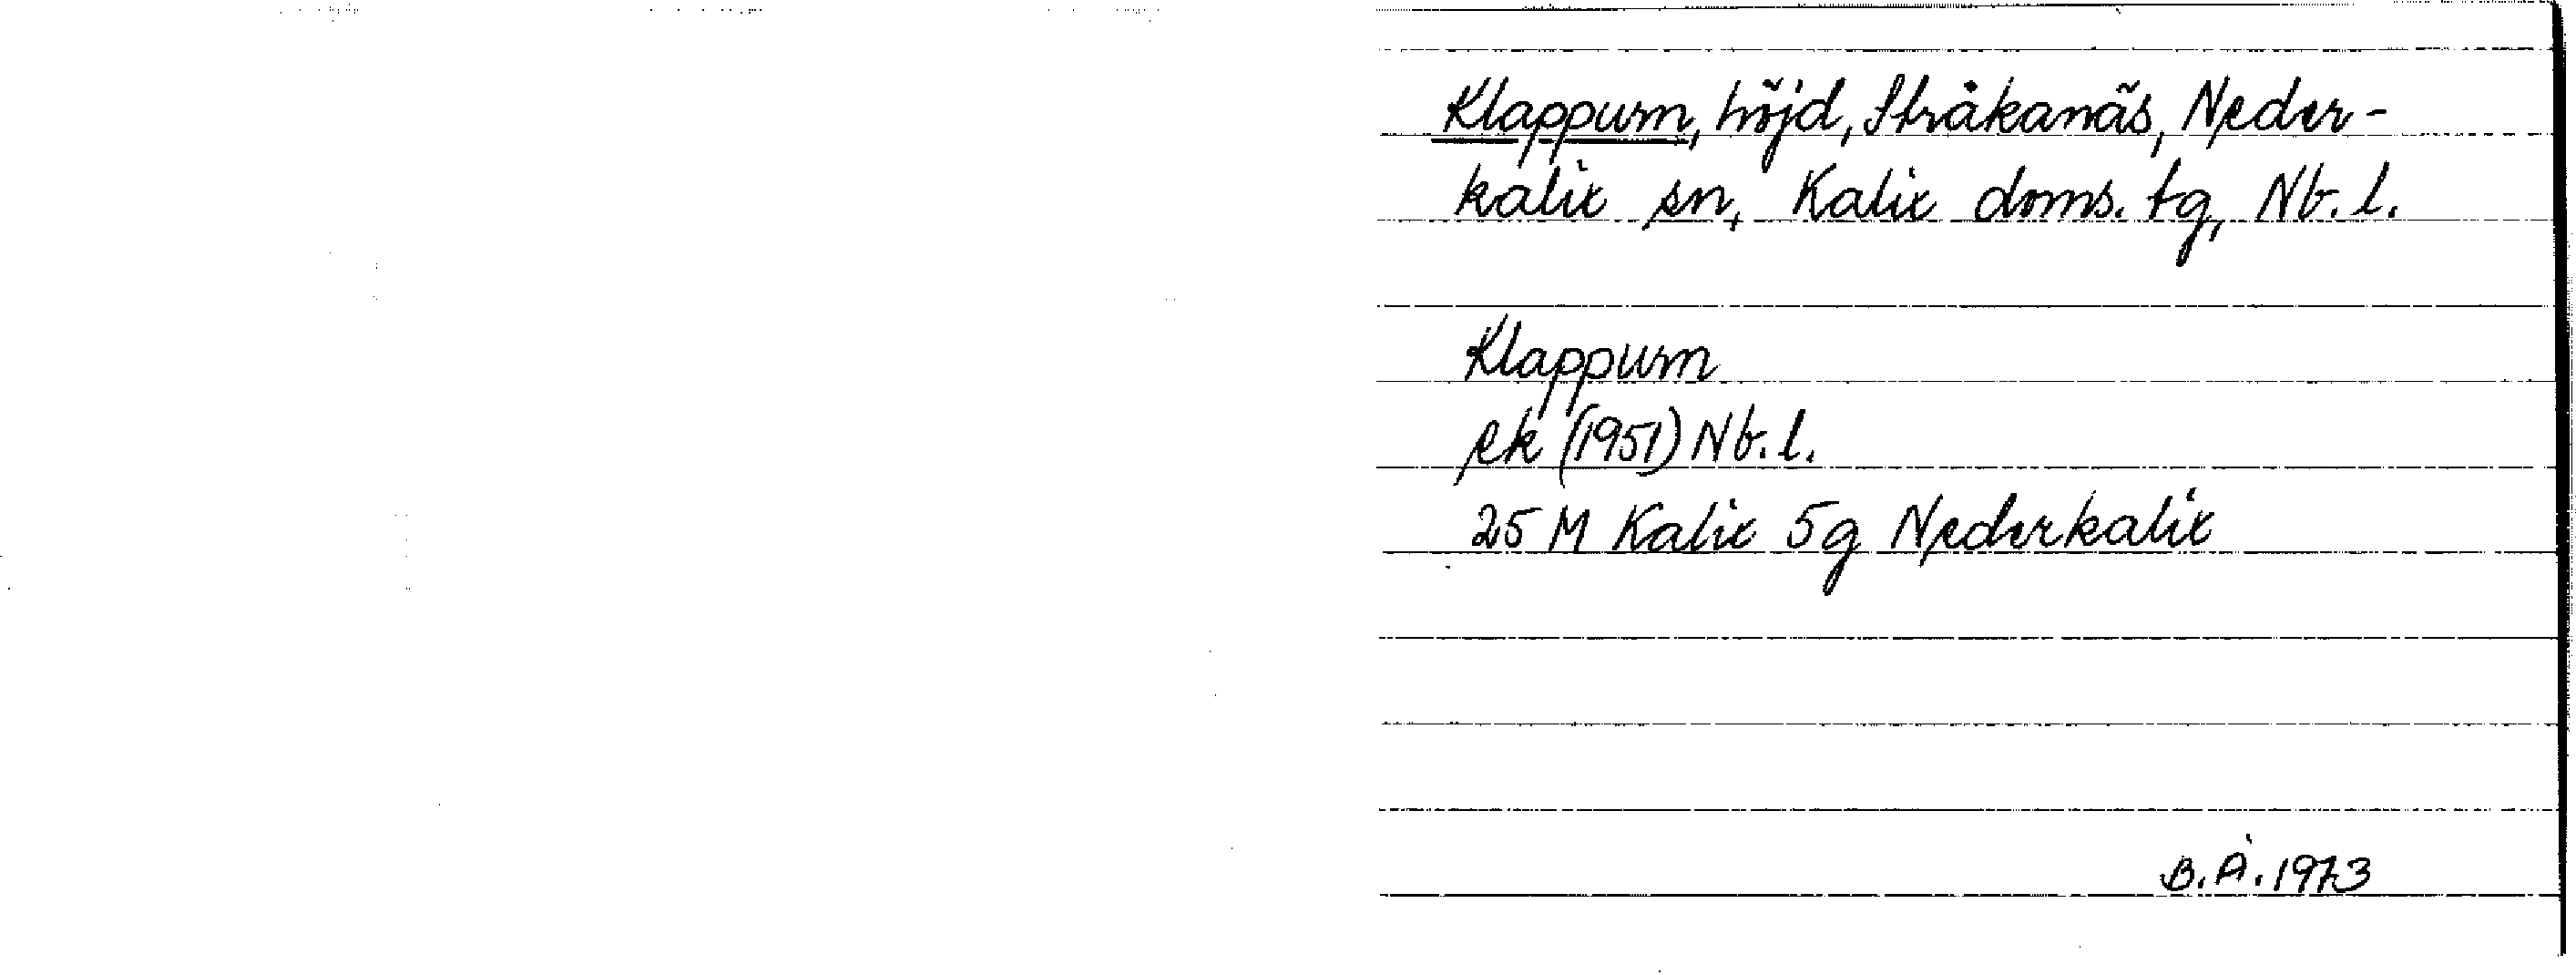 Klappurn, höjd, Stråkanäs, Neder-
kalix sn, Kalix doms. tg, Nb. l.
Klappurn
ek (1951) Nb. l.
25 M Kalix 5g Nederkalix
B. Å. 1973